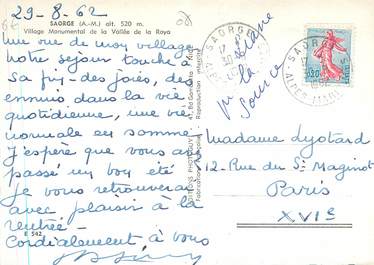 29-8-62
SAORGE (A.-M.) alt. 520 m.
Village Monumental de la Vallée de la Roya
Une vue de mon village
notre séjour touche à
sa fin - des joies, des
ennuis dans la vie
quotidienne, une vie
normale en somme.
J'espère que vous avez
passé un bon été
je vous retrouverai
avec plaisir à la
rentrée -
Cordialement à vous
E 542
la
Source
SAORGE
SAORGE
ALPES-MARIT
0,30
Madame Lyotard
12, Rue du St Maginot
Paris
XVIe